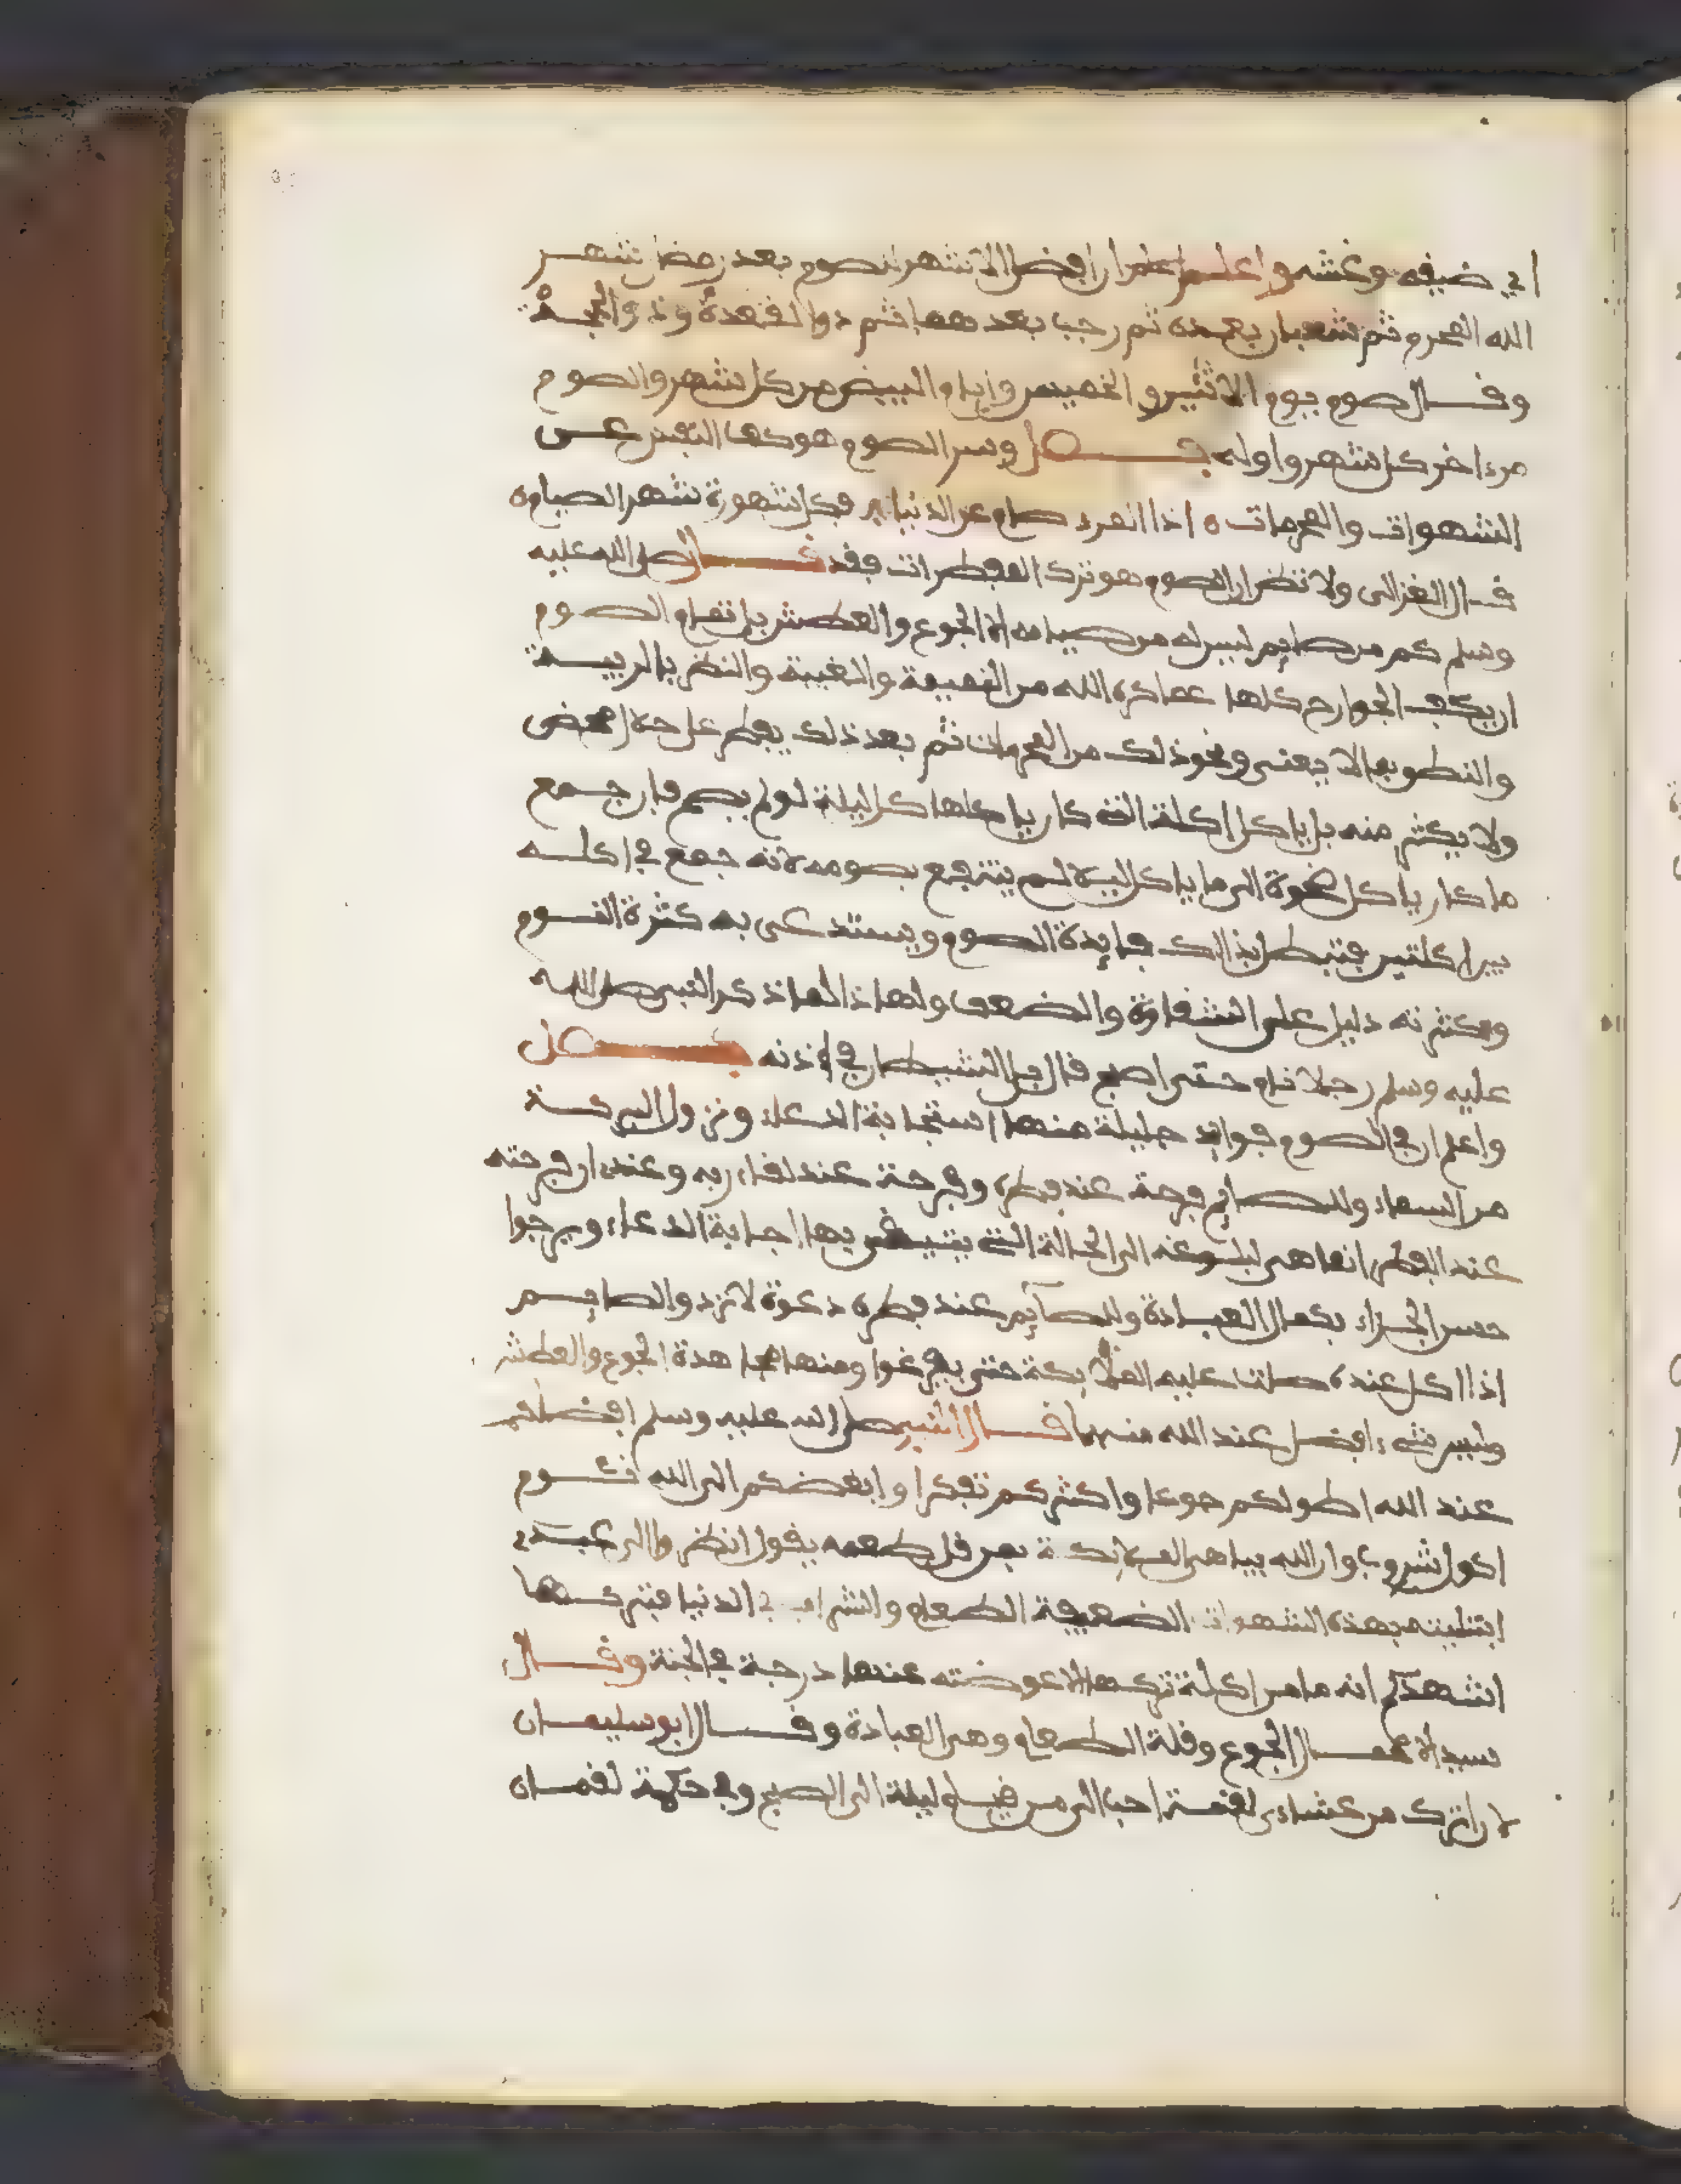 اي ضيفه وغشه واعلم ان افضل الاشهر للصوم بعد رمضان شهر
الله المحرم ثم شعبان بعده ثم رجب بعد هما ثم ذوا القعدة وذوا الحجة
وقال صوم يوم الاثنين والخميس وايام البيض من كل شهر والصوم
من ءاخر كل شهر واوله فصل وسر الصوم هو كف النفس عن
الشهوات والمحرمات اذا المرء صام عن الدنيا فكل شهوره شهر الصيام
قال الغزالى ولا تظن ان الصوم هو ترك المفطرات فقد قال صلى الله عليه
وسلم كم من صايم ليس له من صيامه الا الجوع والعطش بل تمام الصوم
ان يكف الجوارح كلها عما كره الله من النميمة والغيبة والنظر بالريبة
والنطق بما لا يعنى ونحو ذلك من المحرمات ثم بعد ذلك يفطر على حلال محض
ولا يكثر منه بل ياكل اكلة التى كان ياكلها كل ليلة لو لم يصم فان جمع
ما كان ياكل ضحوة الى ما ياكل ليلا لم ينتفع بصومه لانه جمع في اكله
بين اكلتين فتبطل بذالك فايدة الصوم ويستدعى به كثرة النوم
وكثرته دليل على الشقاوة والضعف ولهذا لما ذكر النبى صلى الله
عليه وسلم رجلا نام حتى اصبح قال بال الشيطان في اذنه فصل
واعلم ان في الصوم فوايد جليلة منها استجابة الدعاء ونزول البركة
من السماء وللصايم فرحة عند فطره وفرحة عند لقاء ربه وعنده ان فرحته
عند الفطر انما هى لبلوغه الى الحالة التى يتيقن بها اجابة الدعاء ويرجوا
حسن الجزاء بكمال العبادة وللصآيم عند فطره دعوة لا ترد والصايم
اذا اكل عنده صلت عليه الملايكة حتى يفرغوا ومنها مجاهدة الجوع والعطش
وليس شىء افضل عند الله منهما قال النبى صلى الله عليه وسلم افضلكم
عند الله اطولكم جوعا واكثركم تفكرا وابغضكم الى الله نوم
اكول شروب وان الله يباهى الملايكة بمن قل طعمه يقول انظروا الى عبدى
ابتليته بهذه الشهوات الضعيفة الطعام والشراب في الدنيا فتركها
اشهدكم انه ما من اكلة تركها الا عوضته عنها درجة في الجنة وقال
سيد الاعمال الجوع وقلة الطعام وهى العبادة وقال ابو سليمان
لان اترك من عشاءى لقمة احب الى من قيام ليلة الى الصبح وفي حكمة لقمان